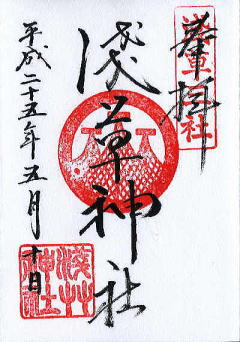 奉拝
浅草神社
平成二十五年五月十日
浅草神社